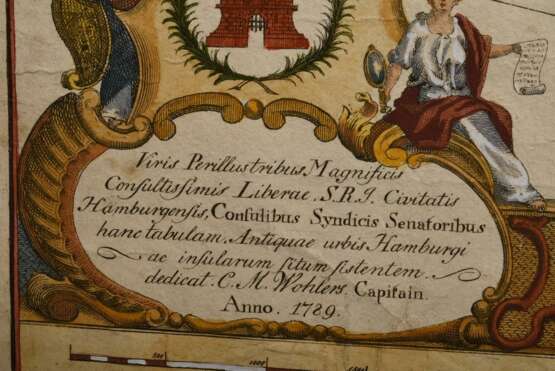 Viris Perillustribus, Magnificis
Consultissimis Liberae. S.R.I. Civitatis
Hamburgensis, Consulibus Syndicis Senatoribus
hanc tabulam. Antiquae urbis Hamburgi
ac insularum situm sistentem.
dedicat. C. M. Wohlers. Capitain.
Anno. 1789.
500
1000